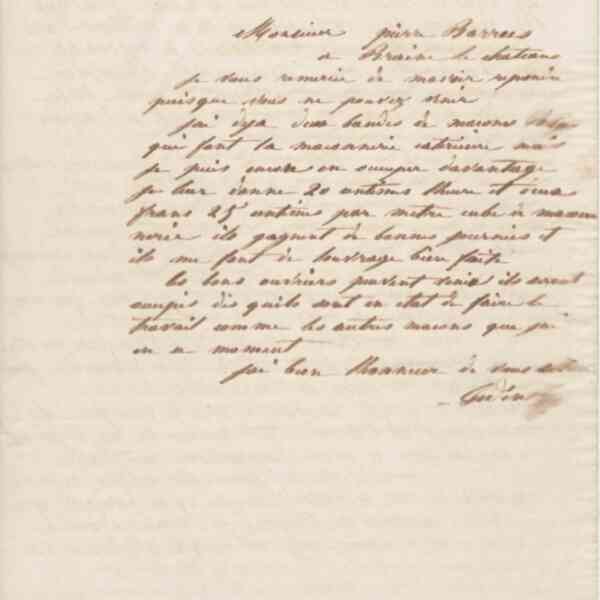 Monsieur pierre Barras
a Braine le chateau
je vous remercie de mavoir repondu
puisque vous ne pouvez venir
jai deja deux bandes de macons
qui font la maconnerie exterieure mais
je puis encore en occuper davantage
je leur donne 20 centimes lheure et deux
frans 25 centimes par metre cube de macon
nerie ils gagnent de bonnes journees et
ils me font de louvrage bien faite
les bons ouvriers peuvent venir ils seront
occupés dès quils sont en etat de faire le
travail comme les autres macons que jai
en ce moment
jai bien lhonneur de vous
Godin